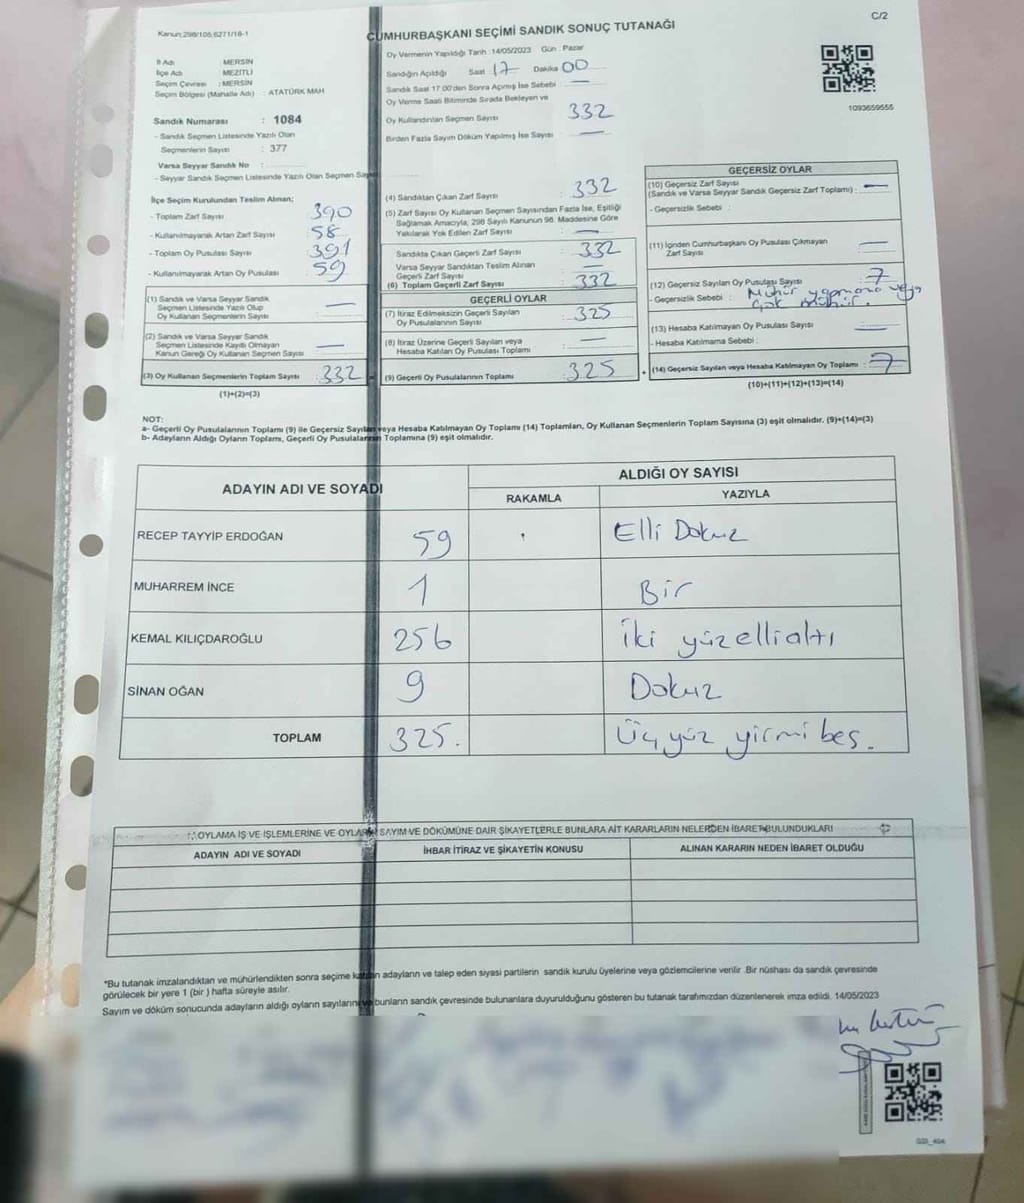 C/2
Kanun:298/105,6271/16-1
CUMHURBAŞKANI SEÇİMİ SANDIK SONUÇ TUTANAĞI
İl Adı : MERSİN
İlçe Adı : MEZİTLİ
Seçim Çevresi : MERSİN
Seçim Bölgesi (Mahalle Adı) : ATATÜRK MAH
Sandık Numarası : 1084
- Sandık Seçmen Listesinde Yazılı Olan
Seçmenlerin Sayısı : 377
Varsa Seyyar Sandık No :
- Seyyar Sandık Seçmen Listesinde Yazılı Olan Seçmen Sayısı
İlçe Seçim Kurulundan Teslim Alınan;
- Toplam Zarf Sayısı : 390
- Kullanılmayarak Artan Zarf Sayısı : 58
- Toplam Oy Pusulası Sayısı : 391
- Kullanılmayarak Artan Oy Pusulası : 59
(1) Sandık ve Varsa Seyyar Sandık
Seçmen Listesinde Yazılı Olup : —
Oy Kullanan Seçmenlerin Sayısı
(2) Sandık ve Varsa Seyyar Sandık
Seçmen Listesinde Kayıtlı Olmayan : —
Kanun Gereği Oy Kullanan Seçmen Sayısı
(3) Oy Kullanan Seçmenlerin Toplam Sayısı : 332
(1)+(2)=(3)
Oy Vermenin Yapıldığı Tarih : 14/05/2023 Gün : Pazar
Sandığın Açıldığı Saat 17 Dakika 00
Sandık Saat 17.00'den Sonra Açılmış İse Sebebi : —
Oy Verme Saati Bitiminde Sırada Bekleyen ve
Oy Kullandırılan Seçmen Sayısı : 332
Birden Fazla Sayım Döküm Yapılmış İse Sayısı : —
(4) Sandıktan Çıkan Zarf Sayısı : 332
(5) Zarf Sayısı Oy Kullanan Seçmen Sayısından Fazla İse, Eşitliği
Sağlamak Amacıyla, 298 Sayılı Kanunun 98. Maddesine Göre
Yakılarak Yok Edilen Zarf Sayısı : —
Sandıkta Çıkan Geçerli Zarf Sayısı : 332
Varsa Seyyar Sandıktan Teslim Alınan
Geçerli Zarf Sayısı : —
(6) Toplam Geçerli Zarf Sayısı : 332
GEÇERLİ OYLAR
(7) İtiraz Edilmeksizin Geçerli Sayılan
Oy Pusulalarının Sayısı : 325
(8) İtiraz Üzerine Geçerli Sayılan veya
Hesaba Katılan Oy Pusulası Toplamı : —
(9) Geçerli Oy Pusulalarının Toplamı : 325
1093659555
GEÇERSİZ OYLAR
(10) Geçersiz Zarf Sayısı
(Sandık ve Varsa Seyyar Sandık Geçersiz Zarf Toplamı) : —
- Geçersizlik Sebebi :
(11) İçinden Cumhurbaşkanı Oy Pusulası Çıkmayan
Zarf Sayısı : —
(12) Geçersiz Sayılan Oy Pusulası Sayısı : 7
- Geçersizlik Sebebi : Mühür yapmama veya
Çok mühür
(13) Hesaba Katılmayan Oy Pusulası Sayısı : —
- Hesaba Katılmama Sebebi :
(14) Geçersiz Sayılan veya Hesaba Katılmayan Oy Toplamı : 7
(10)+(11)+(12)+(13)=(14)
NOT:
a- Geçerli Oy Pusulalarının Toplamı (9) ile Geçersiz Sayılan veya Hesaba Katılmayan Oy Toplamı (14) Toplamları, Oy Kullanan Seçmenlerin Toplam Sayısına (3) eşit olmalıdır. (9)+(14)=(3)
b- Adayların Aldığı Oyların Toplamı, Geçerli Oy Pusulalarının Toplamına (9) eşit olmalıdır.
ADAYIN ADI VE SOYADI
ALDIĞI OY SAYISI
RAKAMLA YAZIYLA
RECEP TAYYİP ERDOĞAN 59 Elli Dokuz
MUHARREM İNCE 1 Bir
KEMAL KILIÇDAROĞLU 256 İki yüzellialtı
SİNAN OĞAN 9 Dokuz
TOPLAM 325. Üç yüz yirmi beş.
OYLAMA İŞ VE İŞLEMLERİNE VE OYLARIN SAYIM VE DÖKÜMÜNE DAİR ŞİKAYETLERLE BUNLARA AİT KARARLARIN NELERDEN İBARET BULUNDUKLARI
ADAYIN ADI VE SOYADI İHBAR İTİRAZ VE ŞİKAYETİN KONUSU ALINAN KARARIN NEDEN İBARET OLDUĞU
*Bu tutanak imzalandıktan ve mühürlendikten sonra seçime katılan adayların ve talep eden siyasi partilerin sandık kurulu üyelerine veya gözlemcilerine verilir .Bir nüshası da sandık çevresinde
görülecek bir yere 1 (bir ) hafta süreyle asılır.
Sayım ve döküm sonucunda adayların aldığı oyların sayılarını ve bunların sandık çevresinde bulunanlara duyurulduğunu gösteren bu tutanak tarafımızdan düzenlenerek imza edildi. 14/05/2023